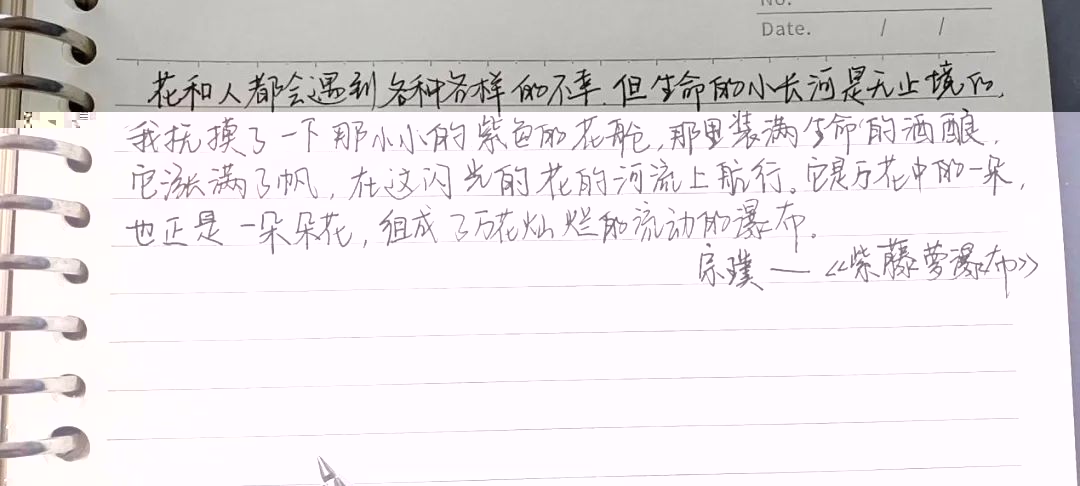 No.
Date. / /
花和人都会遇到各种各样的不幸,但生命的小长河是无止境的,
我抚摸了一下那小小的紫色的花舱,那里装满生命的酒酿,
它涨满了帆,在这闪光的花的河流上航行。它是万花中的一朵,
也正是一朵朵花,组成了万花灿烂的流动的瀑布。
宗璞——《紫藤萝瀑布》